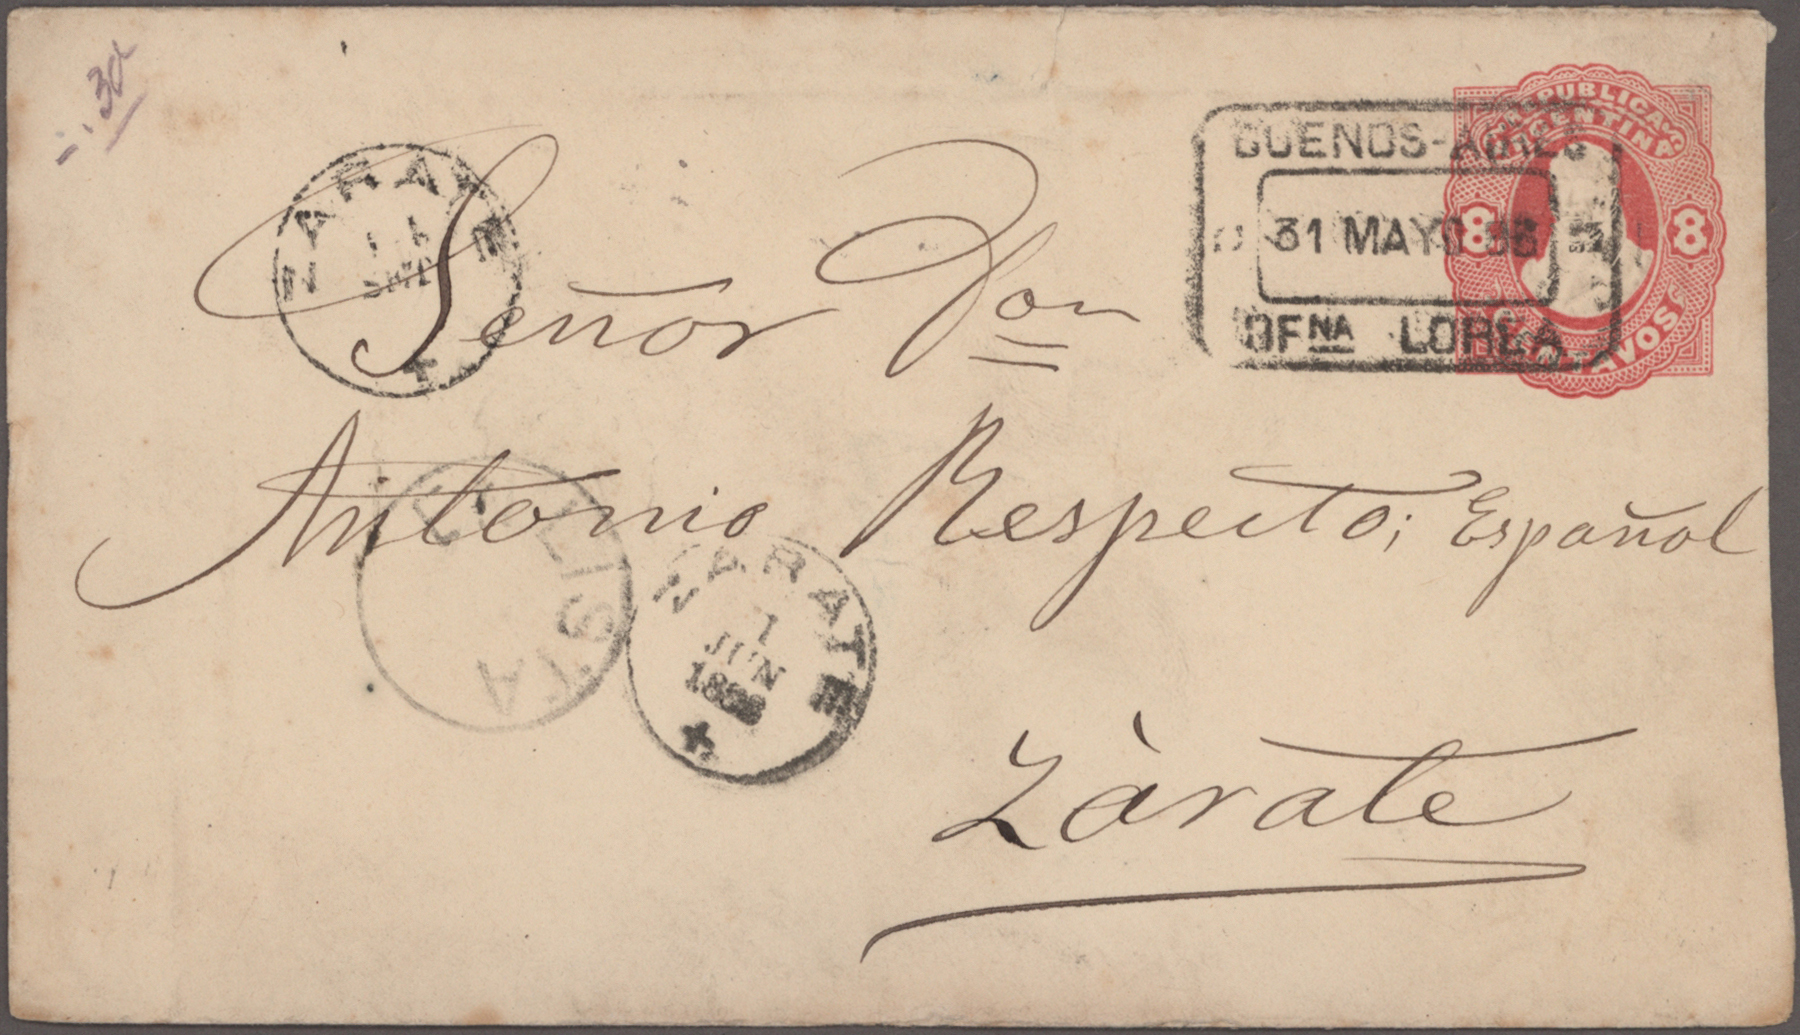 30
REPUBLICA
ARGENTINA
8 8
CENTAVOS
BUENOS-AIRES
31 MAYO 88
OFNA LOREA
Señor Don
Antonio Respecto; Español
ZARATE
1
JUN
1888
LISTA
Zàrate